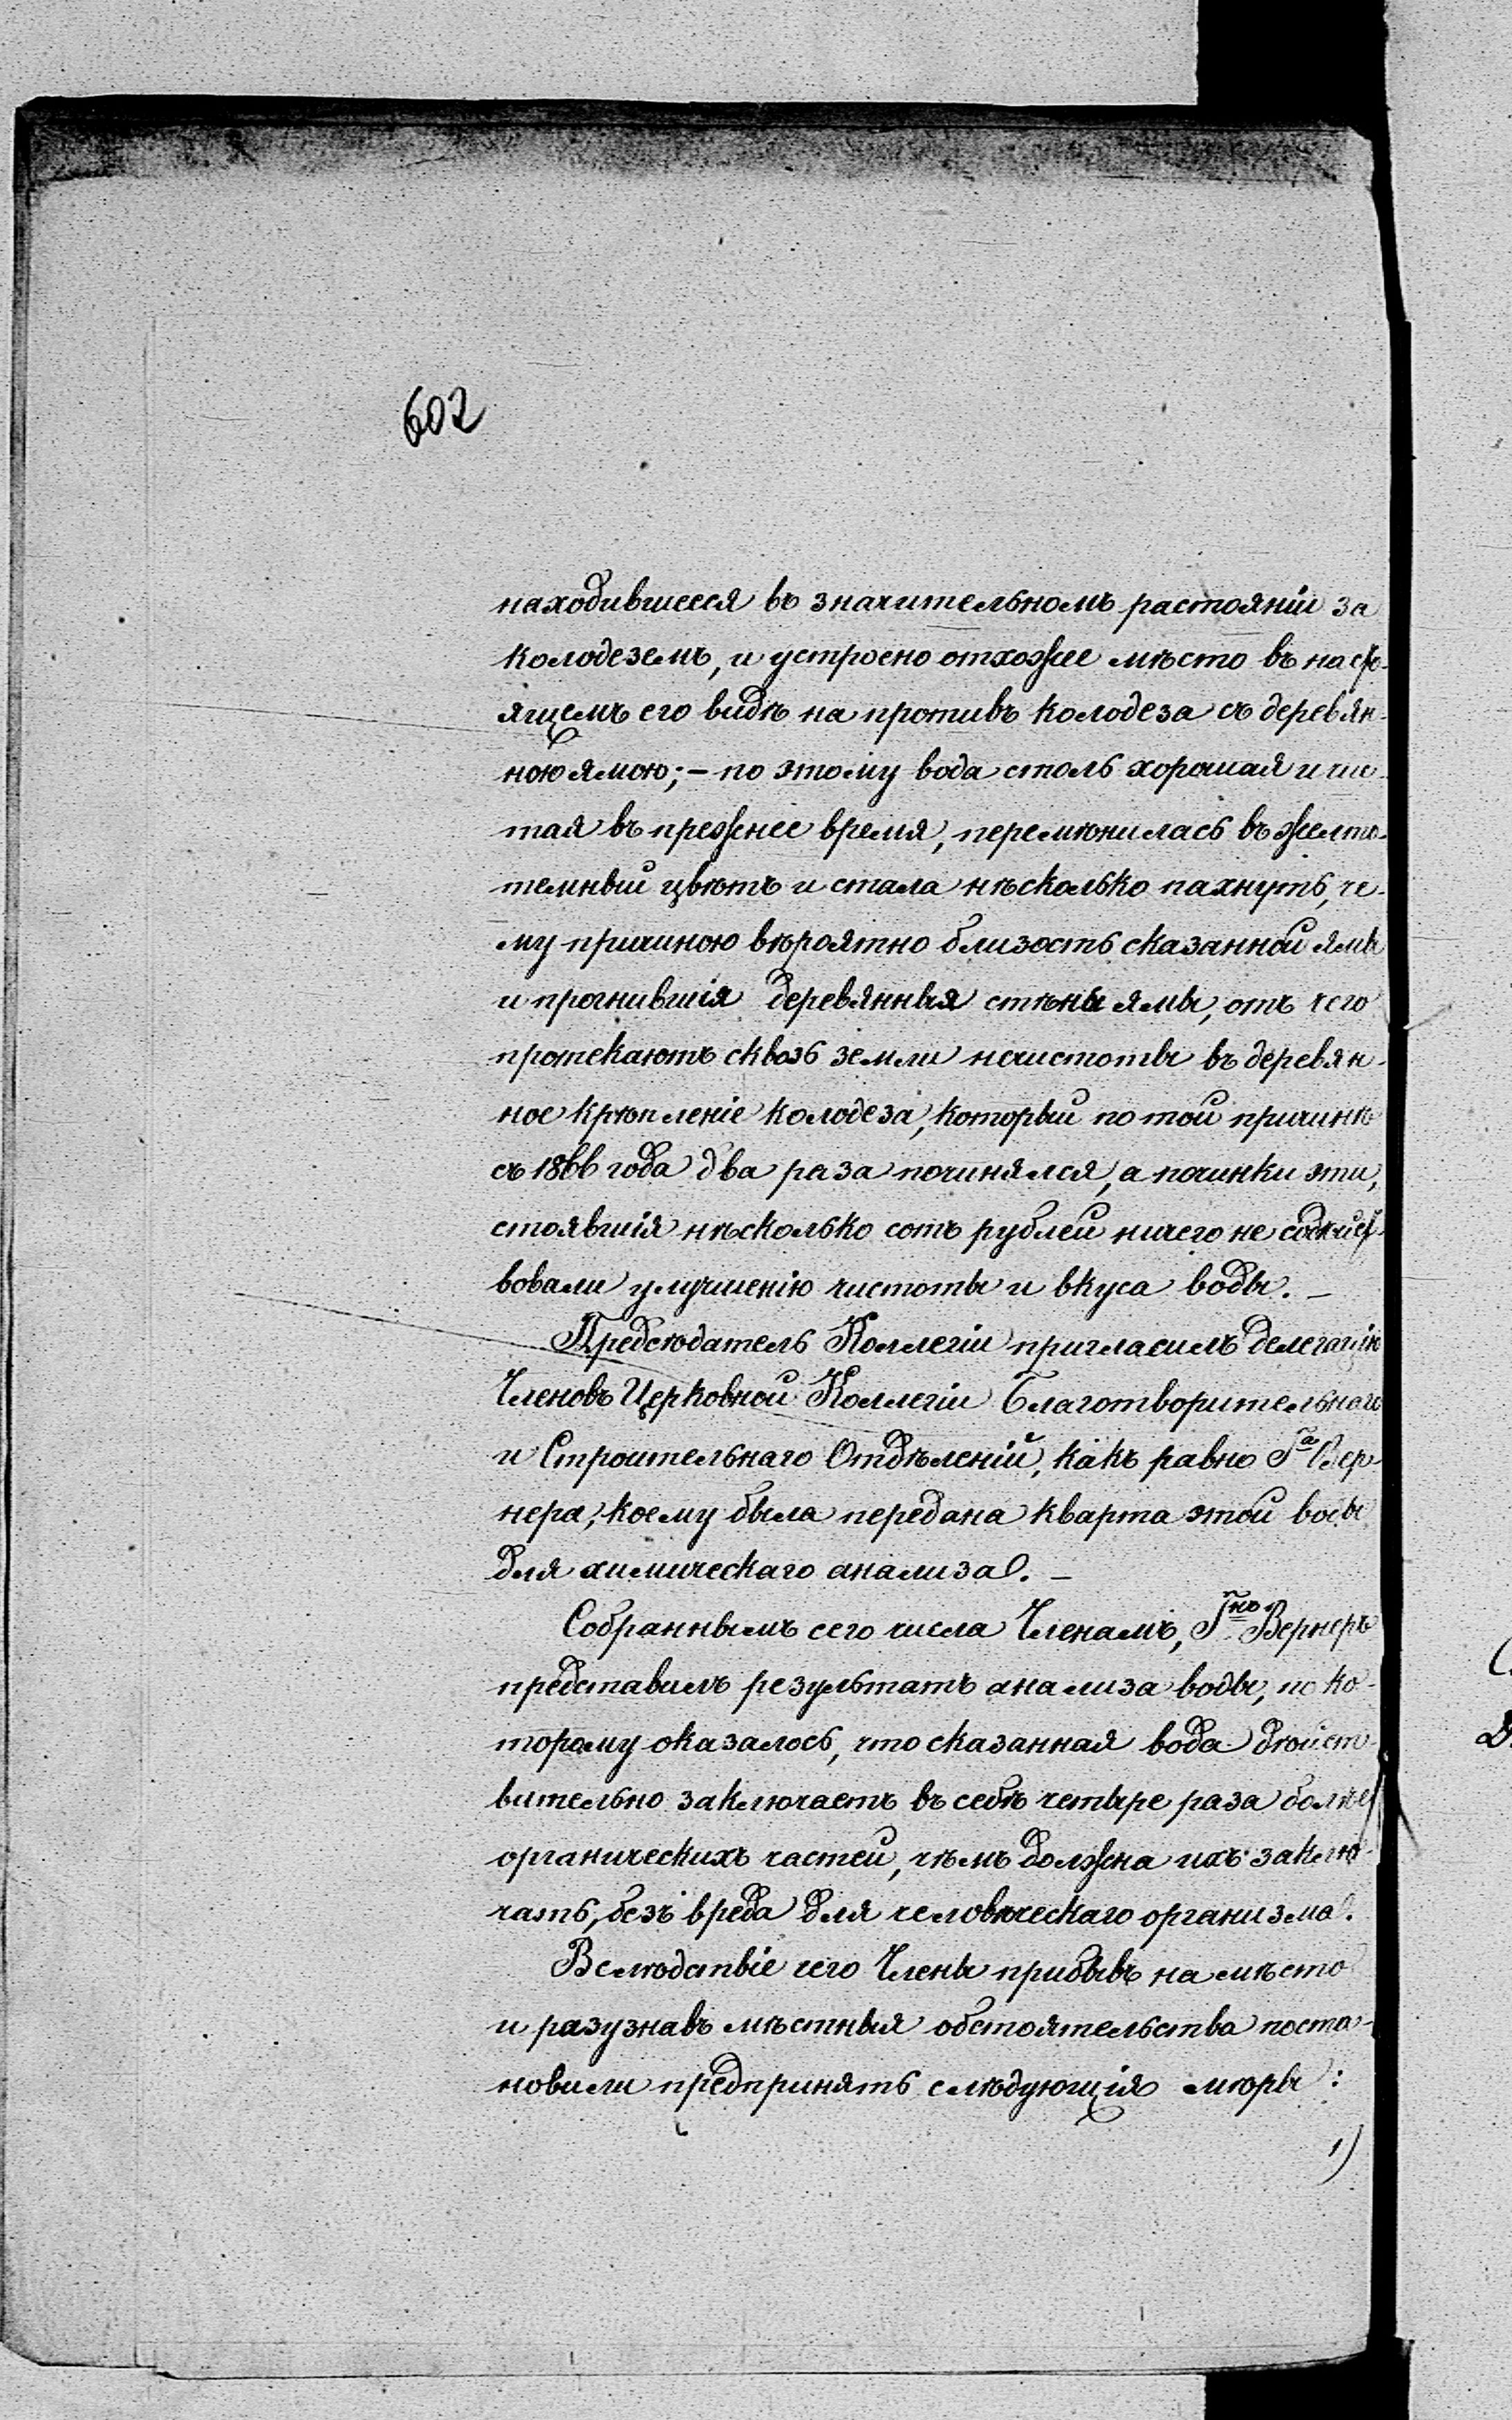 602
находившееся въ значительномъ растояніи за
колодеземъ, и устроено отхожее мѣсто въ насто-
ящемъ его видѣ на противъ колодеза съ деревян-
ною ямою; – по этому вода столь хорошая и чис-
тая въ прежнее время, перемѣнилась въ желто-
темный цвѣтъ и стала нѣсколько пахнуть, че-
му причиною вѣроятно близость сказанной ямы
и прогнившія деревянныя стѣны ямы, отъ чего
протекаютъ сквозь земли нечистоты въ деревян-
ное крѣпленіе колодеза, который по той причинѣ
съ 1866 года два раза починялся, а починки эти,
стоявшія нѣсколько сотъ рублей ничего не содѣйст-
вовали улучшенію чистоты и вкуса воды. –
Предсѣдатель Коллегіи пригласилъ делегацію
Членовъ Церковной Коллегіи Благотворительнаго
и Строительнаго Отдѣленій, какъ равно Г-а Вер-
нера, коему была передана кварта этой воды
для химическаго анализа. –
Собраннымъ сего числа Членамъ, Г-нъ Вернеръ
представилъ результатъ анализа воды, по ко-
торому оказалось, что сказанная вода дѣйст-
вительно заключаетъ въ себѣ четыре раза болѣе
органическихъ частей, чѣмъ должна ихъ заклю-
чать, безъ вреда для человѣческаго организма.
Вслѣдствіе чего Члены прибывъ на мѣсто
и разузнавъ мѣстныя обстоятельства поста-
новили предпринять слѣдующія мѣры:
1)